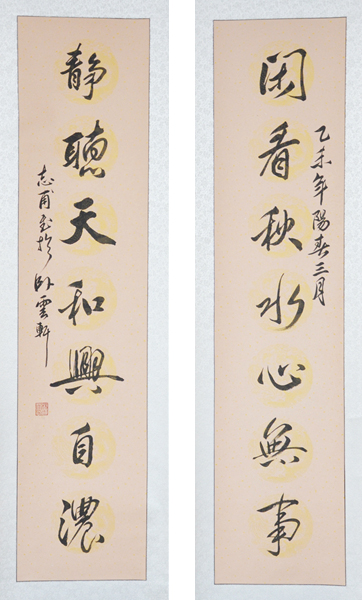 乙未年陽春三月
閑看秋水心無事
静聽天和興自濃
志甫書於卧雲軒